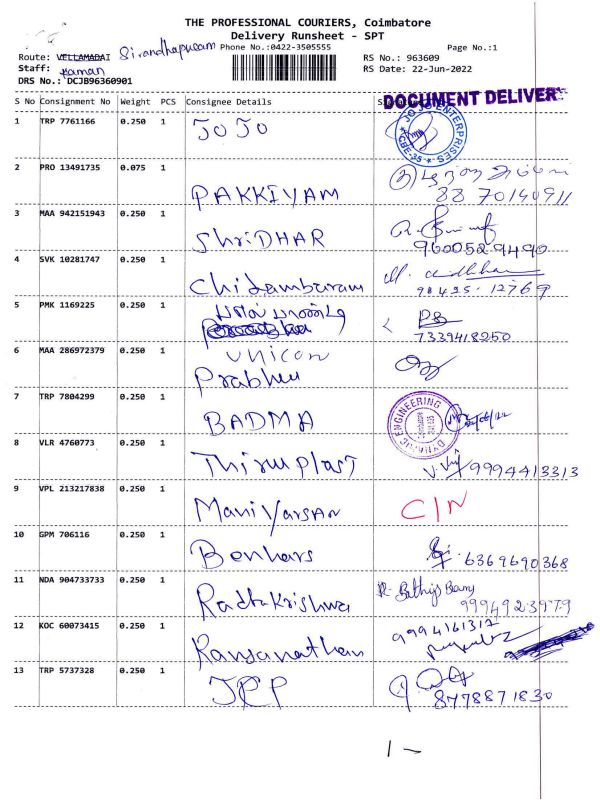 THE PROFESSIONAL COURIERS, Coimbatore
Delivery Runsheet - SPT
Phone No.:0422-3505555 Page No.:1
Route: VELLAMADAI RS No.: 963609
Staff: Raman RS Date: 22-Jun-2022
DRS No.: DCJB96360901
DOCUMENT DELIVER
S No Consignment No Weight PCS Consignee Details
1 TRP 7761166 0.250 1 JOJO
JOJO ENTERPRISES
★ CBE-35 ★
2 PRO 13491735 0.075 1 PAKKIYAM
88 70140911
3 MAA 942151943 0.250 1 ShriDHAR
9600529490
4 SVK 10281747 0.250 1 Chidambaram
98425-12769
5 PMK 1169225 0.250 1
7339418250
6 MAA 286972379 0.250 1 Unicon
Prabhu
7 TRP 7804299 0.250 1 BADMA
ENGINEERING
8 VLR 4760773 0.250 1 Thiruplast
9994413313
9 VPL 213217838 0.250 1 Manivarsan C/N
10 GPM 706116 0.250 1 Benhars
6369690368
11 NDA 904733733 0.250 1 Radhakrishna
9994923979
12 KOC 60073415 0.250 1 Ranganathan
9994161312
13 TRP 5737328 0.250 1 JCP
8778871830
1 -